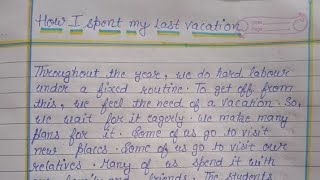 How I spent my last vacation
Throughout the year, we do hard labour
under a fixed routine. To get off from
this, we feel the need of a vacation. So,
we wait for it eagerly. We make many
plans for it. Some of us go to visit
new places. Some of us go to visit our
relatives. Many of us spend it with
friends. The students